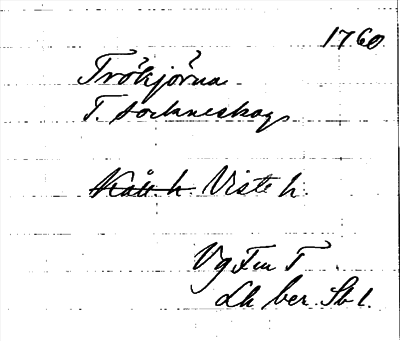 1760
Trökjörna
T. sockneskog
Kåll. h. Viste h.
Vg Fu T
Lh ber. Sb 1.